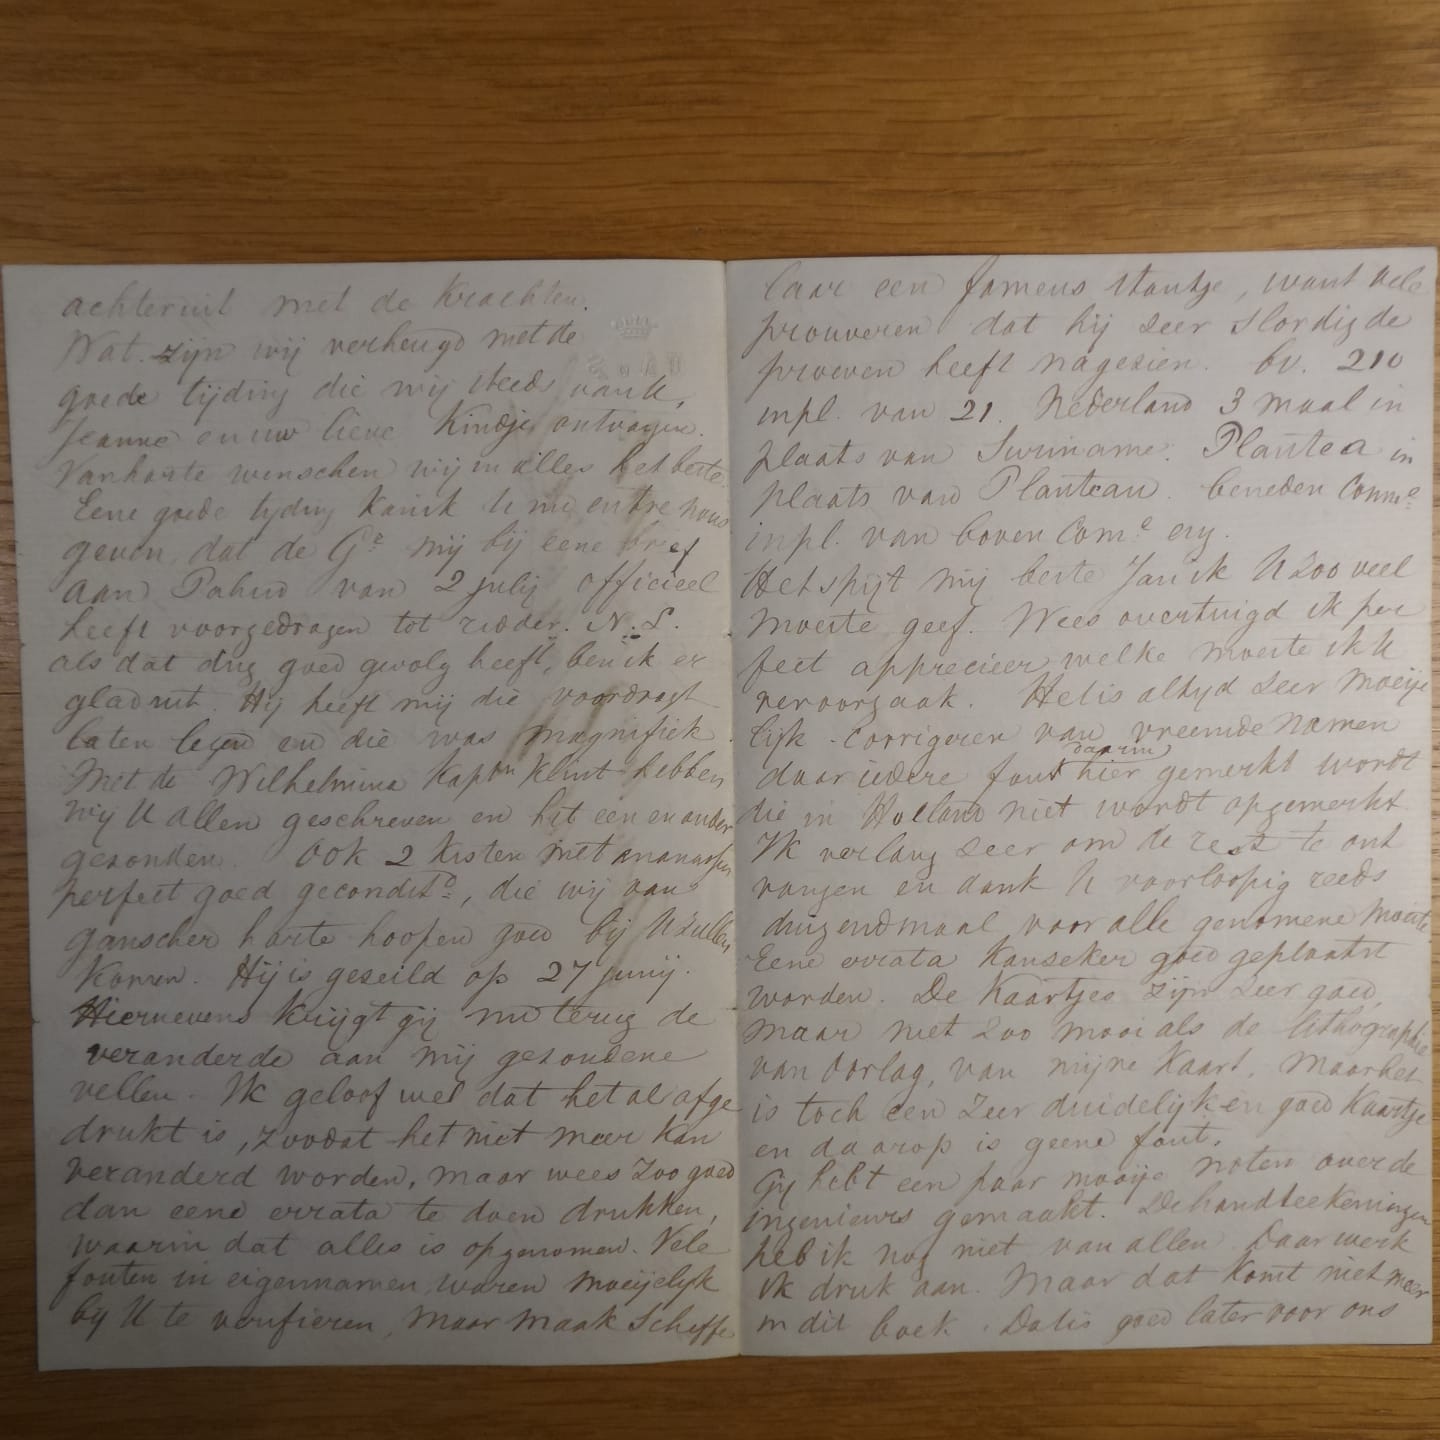 achteruit met de Krachten.
Wat zijn wij verheugd met de
goede tijding die wij steeds van U,
Jeanne en uw lieve Kindje ontvangen.
Van harte wenschen wij in alles het beste.
Eene goede tyding kan ik U nu entre nous
geven, dat de Gr. mij bij eene brief
aan Pahud van 2 July officieel
heeft voorgedragen tot ridder. N. L.
als dat ding goed gevolg heeft, ben ik er
glad uit. Hij heeft mij die voordragt
laten lezen en die was magnifiek.
Met de Wilhelmina Kaptn Klint hebben
wij U allen geschreven en het een en ander
gezonden. Ook 2 Kisten met ananassen
perfect goed gecondito., die wij van
ganscher harte hoopen goed bij U zullen
komen. Hij is gezeild op 27 junij.
Hiernevens krijgt gij nu terug de
veranderde aan mij gezondene
vellen. Ik geloof wel dat het al afge
drukt is, zoodat het niet meer kan
veranderd worden, maar wees zoo goed
dan eene errata te doen drukken,
waarin dat alles is opgenomen. Vele
fouten in eigennamen waren moeijelyk
by U te verifieren, maar maak Scheffe
laar een fameus standje, want vele
prouveren dat hij zeer slordig de
proeven heeft nagezien. bv. 210
inpl. van 21. Nederland 3 maal in
plaats van Suriname. Plantea in
plaats van Planteau. beneden Comme.
inpl. van boven Come. enz.
Het spijt mij beste Jan ik U zoo veel
moeite geef. Wees overtuigd ik per
fect apprecieer welke moeite ik U
veroorzaak. Het is altyd zeer moeije
lijk corrigeren van vreemde namen
daarin
daar iedere fout hier gemerkt wordt
die in Holland niet wordt opgemerkt
Ik verlang zeer om de rest te ont
vangen en dank U voorloopig reeds
duizendmaal voor alle genomene moeite.
Eene errata kan zeker goed geplaatst
worden. De Kaartjes zijn zeer goed,
maar niet zoo mooi als de lithographie
van Oorlag, van mijne Kaart. Maar het
is toch een zeer duidelijk en goed Kaartje
en daarop is geene fout.
Gij hebt een paar mooije noten over de
ingenieurs gemaakt. De handteekeningen
heb ik nog niet van allen. Daar werk
ik druk aan. Maar dat komt niet meer
in dit boek. Dat is goed later voor ons